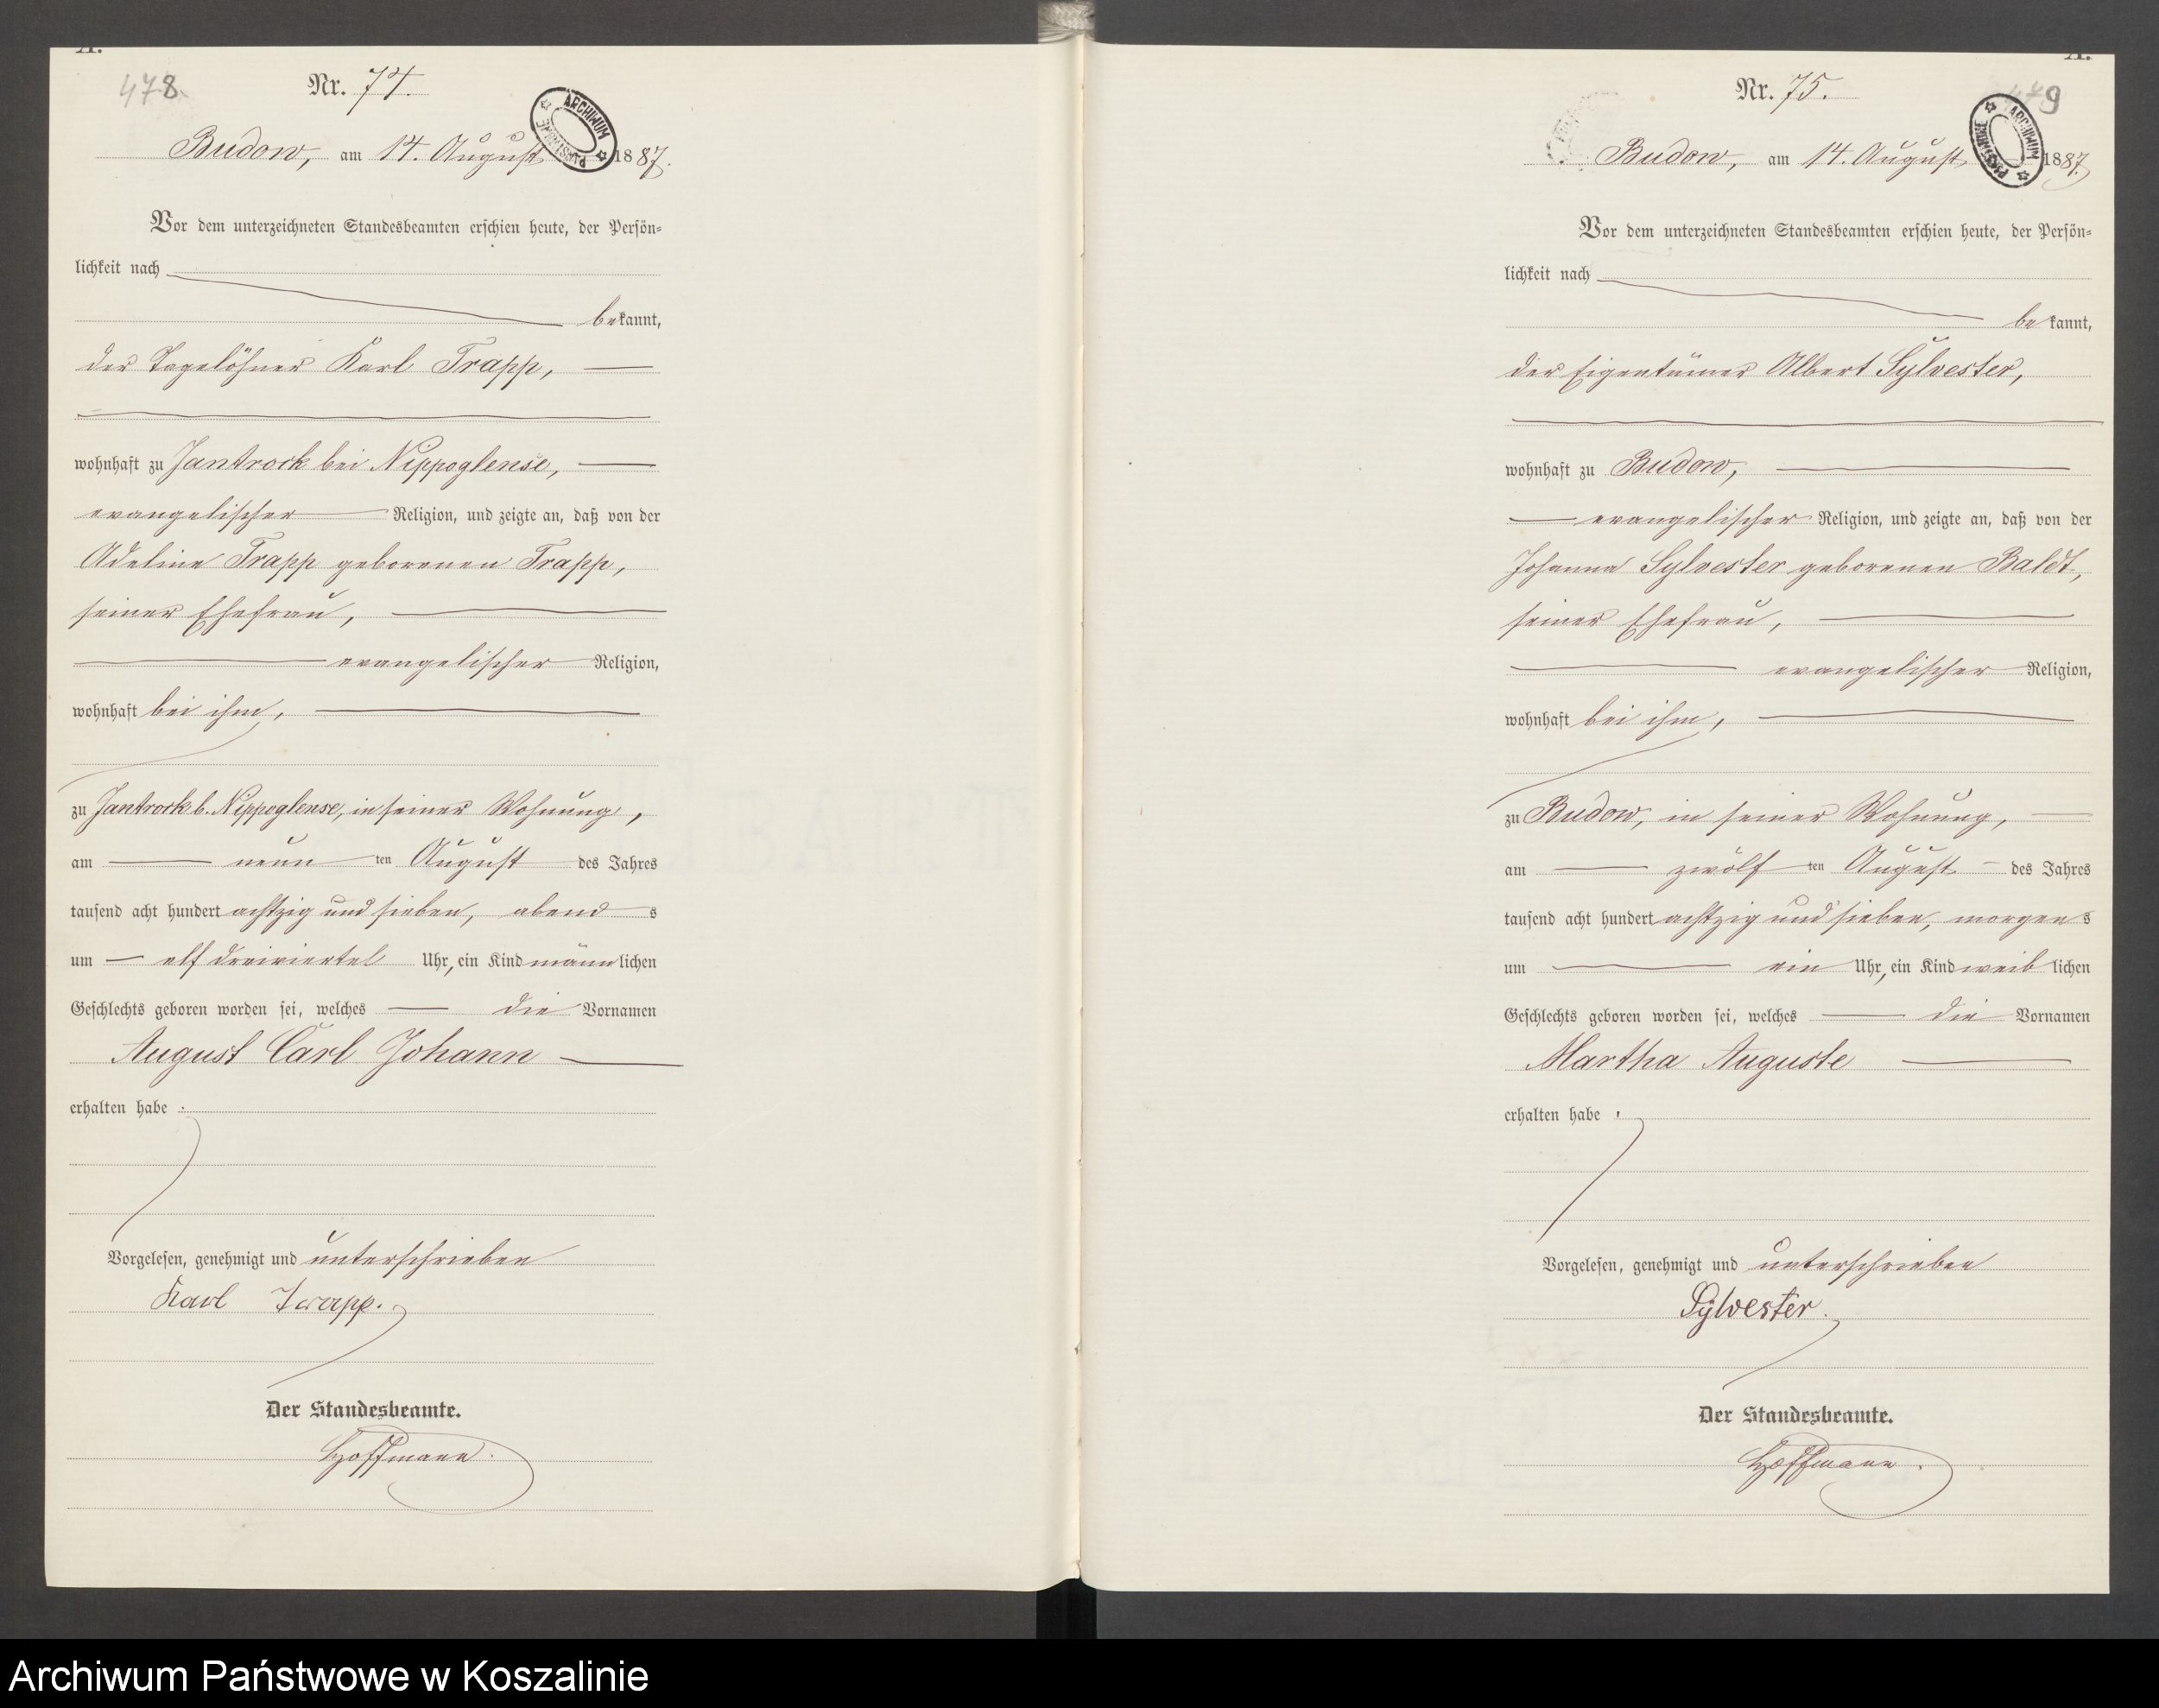 A.
478.
Nr. 74.
ARCHIWUM PAŃSTWOWE
Budow, am 14. August 1887.
Vor dem unterzeichneten Standesbeamten erschien heute, der Persön-
lichkeit nach
bekannt,
der Tagelöhner Karl Trapp,
wohnhaft zu Jantrock bei Nippoglense,
evangelischer Religion, und zeigte an, daß von der
Adeline Trapp geborenen Trapp,
seiner Ehefrau,
evangelischer Religion,
wohnhaft bei ihm,
zu Jantrock b. Nippoglense, in seiner Wohnung,
am neun ten August des Jahres
tausend acht hundert achtzig und sieben, abends
um elf dreiviertel Uhr, ein Kind männlichen
Geschlechts geboren worden sei, welches die Vornamen
August Carl Johann
erhalten habe.
Vorgelesen, genehmigt und unterschrieben
Karl Trapp.
Der Standesbeamte.
Hoffmann.
A.
479
Nr. 75.
ARCHIWUM PAŃSTWOWE
Budow, am 14. August 1887.
Vor dem unterzeichneten Standesbeamten erschien heute, der Persön-
lichkeit nach
bekannt,
der Eigentümer Albert Sylvester,
wohnhaft zu Budow,
evangelischer Religion, und zeigte an, daß von der
Johanna Sylvester geborenen Baldt,
seiner Ehefrau,
evangelischer Religion,
wohnhaft bei ihm,
zu Budow, in seiner Wohnung,
am zwölf ten August des Jahres
tausend acht hundert achtzig und sieben, morgens
um ein Uhr, ein Kind weiblichen
Geschlechts geboren worden sei, welches die Vornamen
Martha Auguste
erhalten habe.
Vorgelesen, genehmigt und unterschrieben
Sylvester.
Der Standesbeamte.
Hoffmann.
Archiwum Państwowe w Koszalinie